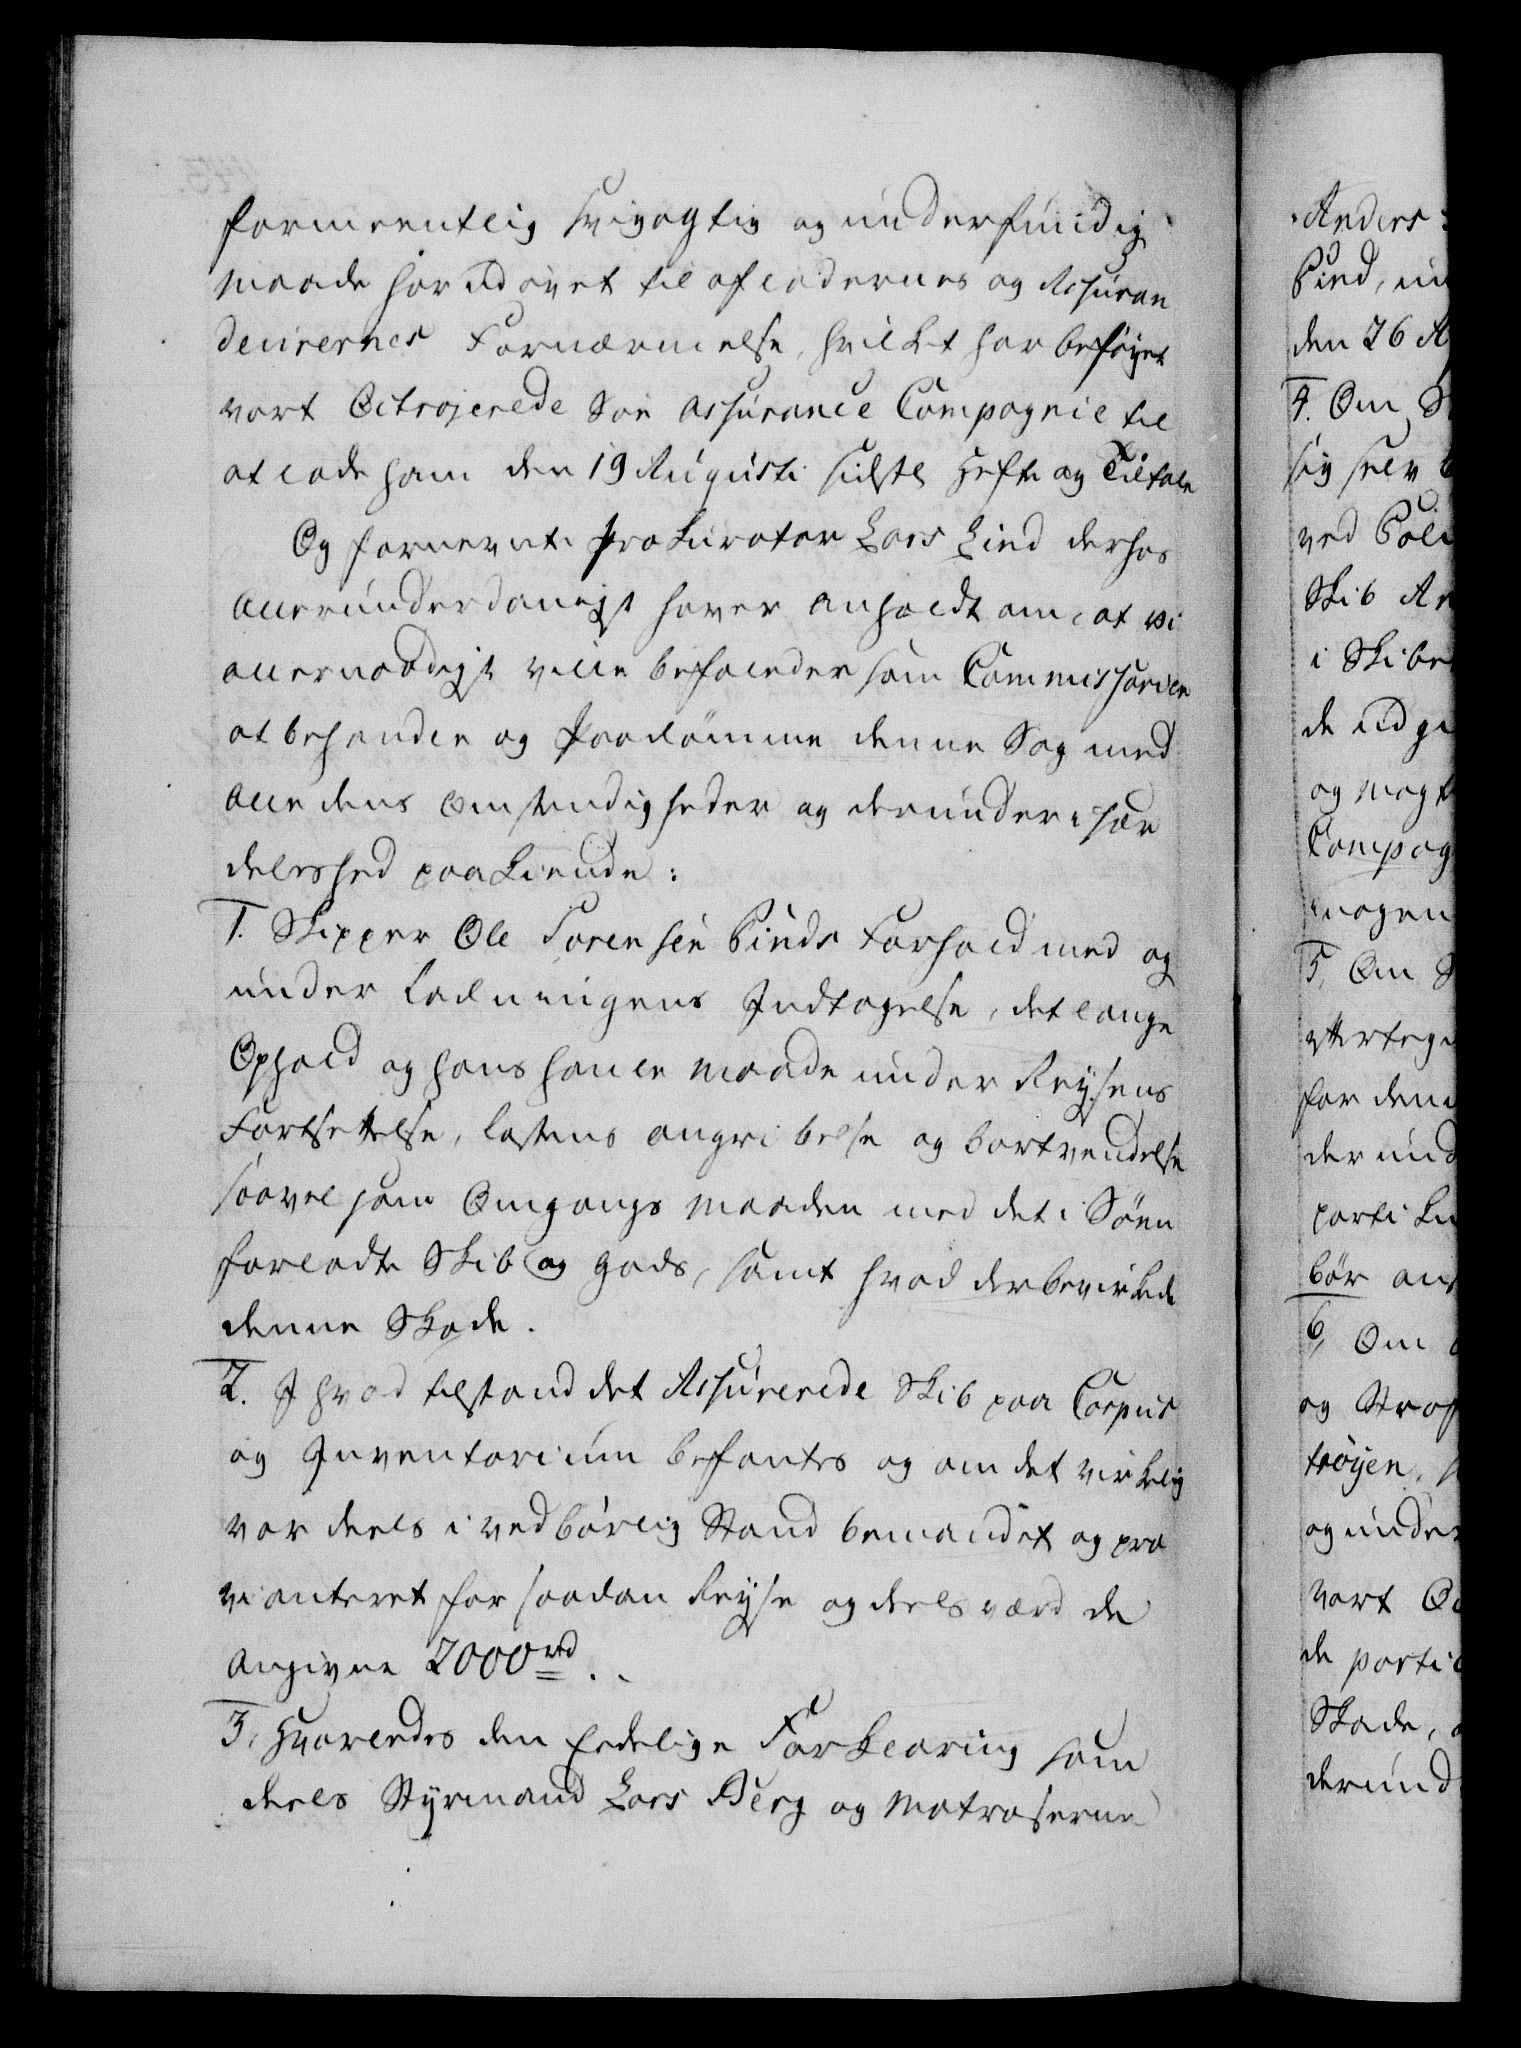 formeentlig svigagtig og underfundig
Maade har udøvet til afladernes og Assuran
deurernes Fornærmelse, hvilket har beføyet
vort Octrojerede Søe Assurance Compagnie til
at lade ham den 19 Augusti sidstl Hefte og Tiltale
Og fornevnte Prokurator Lars Lind derhos
allerunderdanigst haver anholdt om, at vi
allernaadigst ville befale der som Commissarier
at behandle og Paadömme denne Sag med
alle dens Omstendigheder og derunder i sær
deleshed paakiende:
1. Skipper Ole Sørensen Pinds Forhold med og
under Ladningens Indtagelse, det lange
Ophold og hans hanle Maade under Reysens
Fortsettelse, Lastens angribelse og bortvendelse
saavel som Omgangs Maaden med det i Søen
forladte Skib og Gods, samt hvad der bevirkede
denne Skade.
2. I hvad tilstand det Assurerede Skib paa Corpus
og Inventarium befantes og om det virkelig
var deels i vedbørlig Stand bemandet og pro
vianteret for saadan Reyse og deels værd de
angivne 2000 rd. .
3, Hvorledes den Eedelige Forklaring som
deels Styrmand Lars Berg og Matroserne
Anders
Pind, un
den 26 A
4. Om S
sig selv
ved Poli
Skib An
i Skibe
de udgi
og Magt
Compag
nogen
5, Om S
ytterlige
for den
der und
parti ku
bør ans
6, Om
og Straf
trøyen,
og under
vort Oc
de parti
Skade,
derund